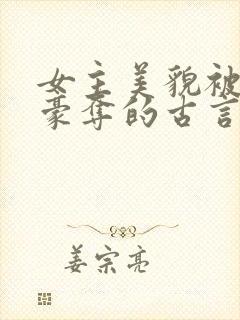 女主美貌被
豪夺的古言
姜宗亮